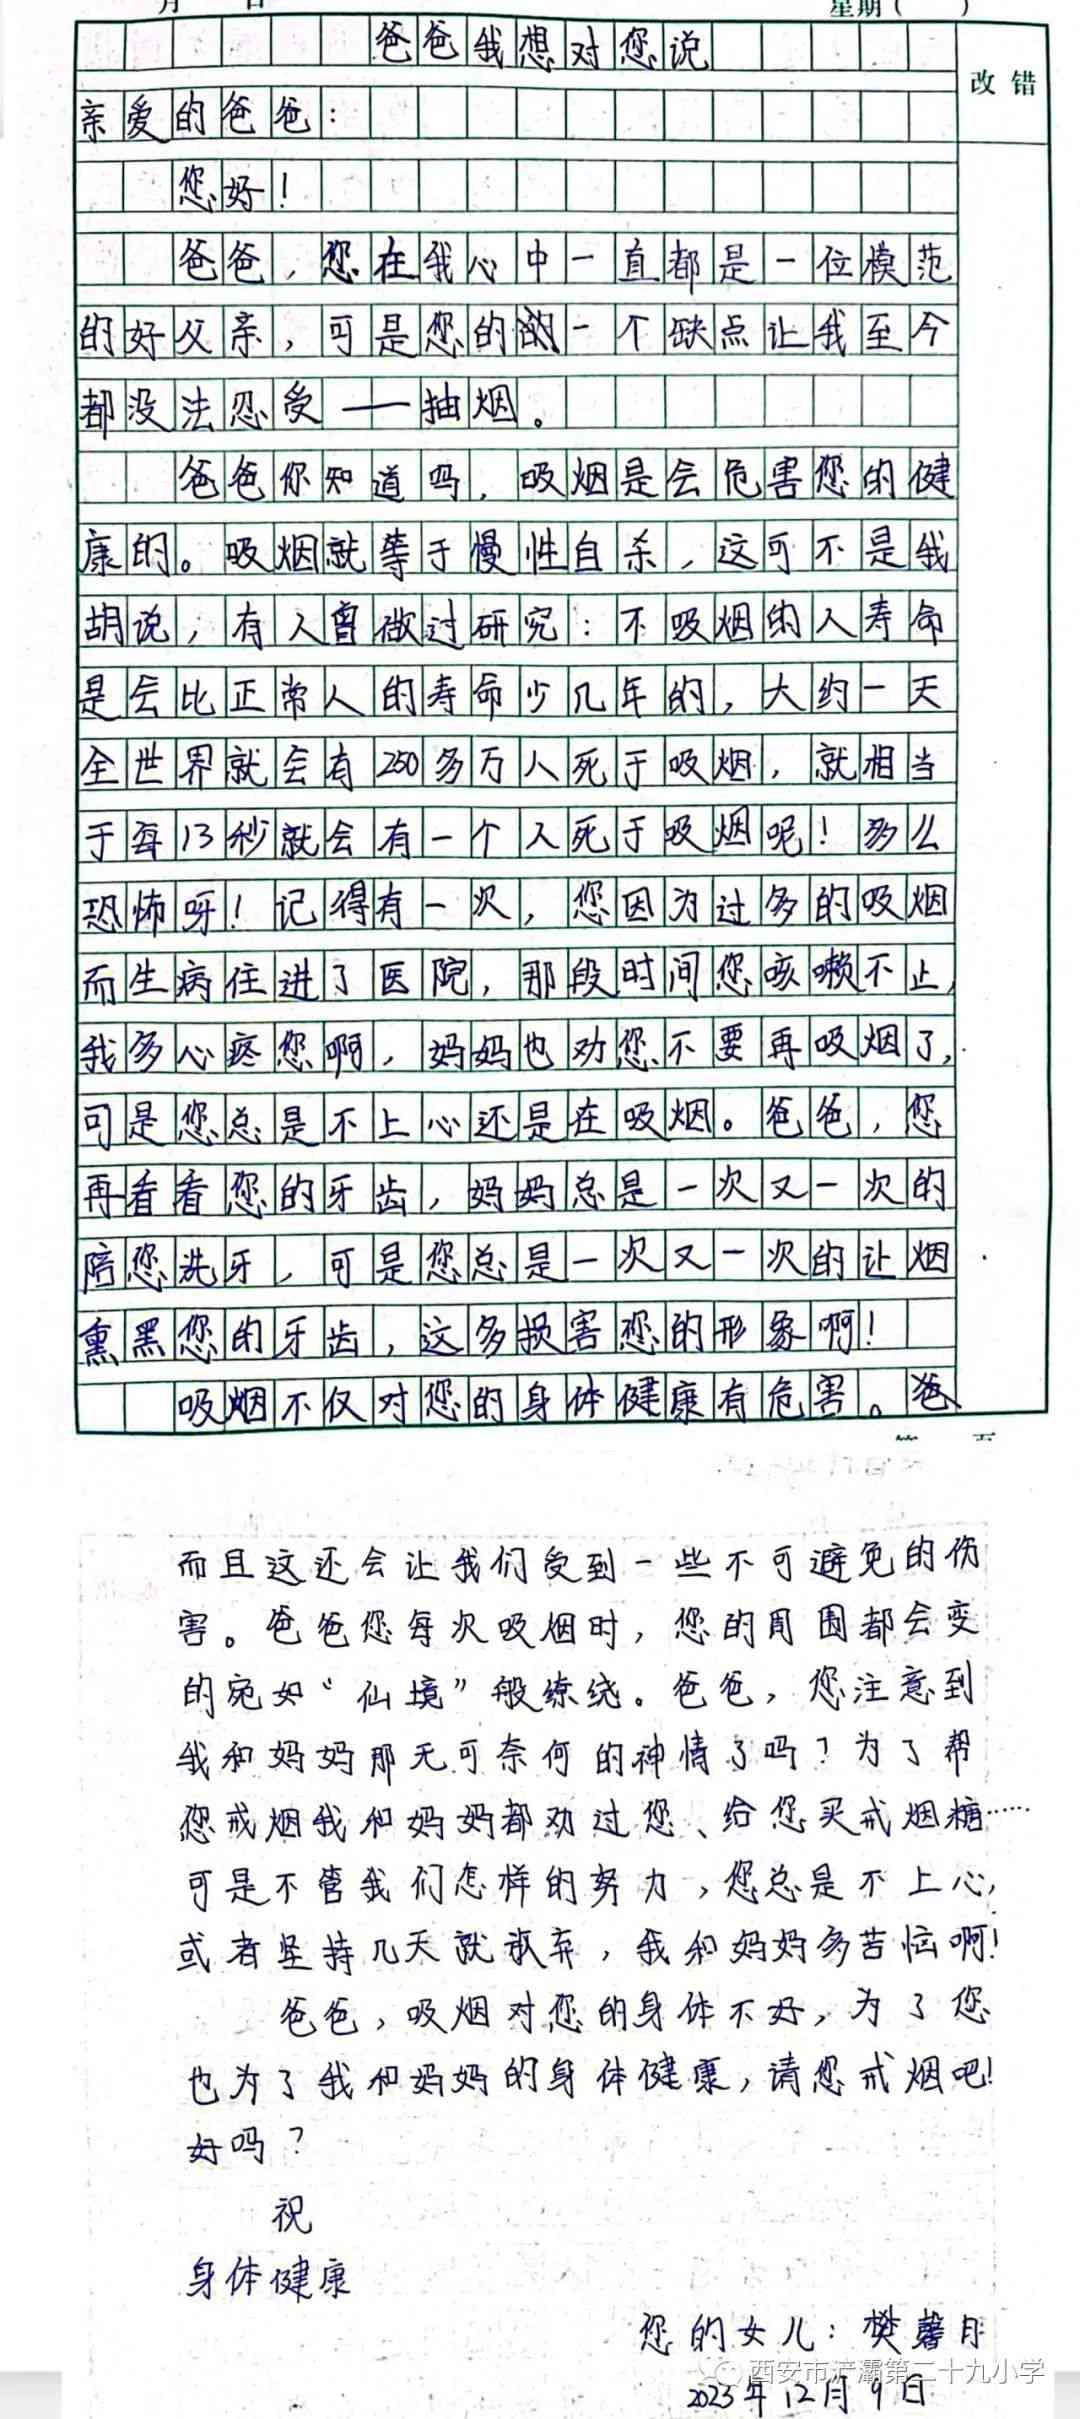 月 日 星期( )
爸爸我想对您说
改错
亲爱的爸爸:
您好!
爸爸,您在我心中一直都是一位模范
的好父亲,可是您的的一个缺点让我至今
都没法忍受——抽烟。
爸爸你知道吗,吸烟是会危害您的健
康的。吸烟就等于慢性自杀,这可不是我
胡说,有人曾做过研究:不吸烟的人寿命
是会比正常人的寿命少几年的,大约一天
全世界就会有250多万人死于吸烟,就相当
于每13秒就会有一个人死于吸烟呢!多么
恐怖呀!记得有一次,您因为过多的吸烟
而生病住进了医院,那段时间您咳嗽不止,
我多心疼您啊,妈妈也劝您不要再吸烟了,
可是您总是不上心还是在吸烟。爸爸,您
再看看您的牙齿,妈妈总是一次又一次的
陪您洗牙,可是您总是一次又一次的让烟
熏黑您的牙齿,这多损害您的形象啊!
吸烟不仅对您的身体健康有危害。爸
而且这还会让我们受到一些不可避免的伤
害。爸爸您每次吸烟时,您的周围都会变
的宛如“仙境”般缭绕。爸爸,您注意到
我和妈妈那无可奈何的神情了吗?为了帮
您戒烟我和妈妈都劝过您、给您买戒烟糖……
可是不管我们怎样的努力,您总是不上心,
或者坚持几天就放弃,我和妈妈多苦恼啊!
爸爸,吸烟对您的身体不好,为了您
也为了我和妈妈的身体健康,请您戒烟吧!
好吗?
祝
身体健康
您的女儿:樊馨月
西安市浐灞第二十九小学
2023年12月9日